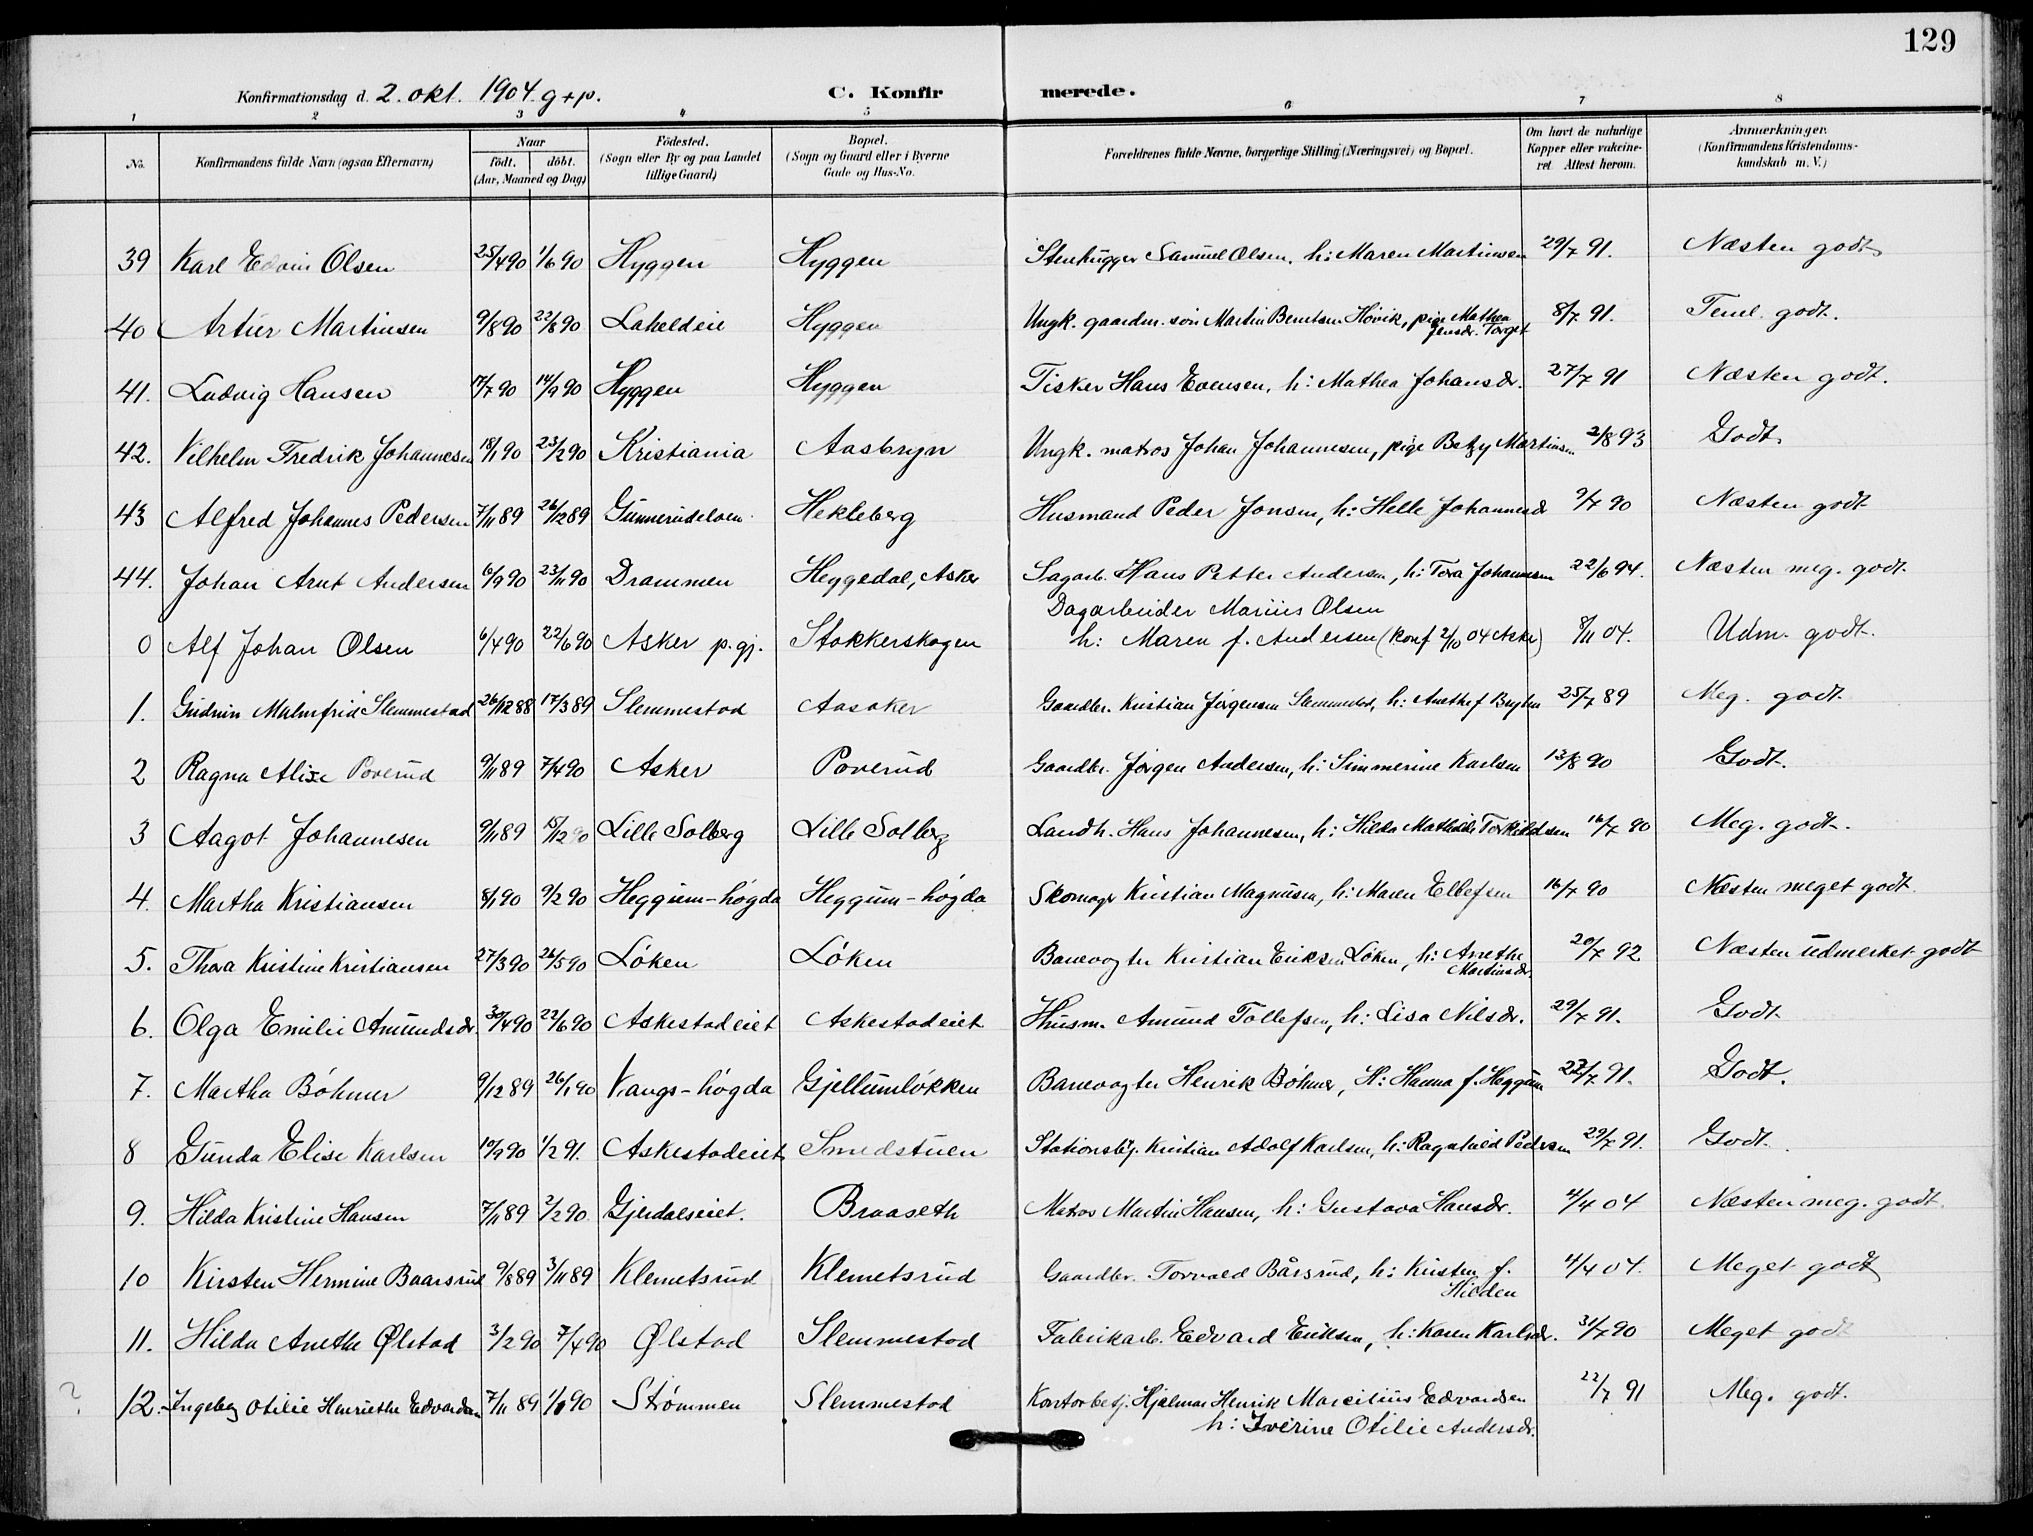 129
Konfirmationsdag d. 2. okt. 1904. g+p. C. Konfirmerede.
1 2 3 4 5 6 7 8
No. Konfirmandens fulde Navn (ogsaa Efternavn) Naar født. døbt. (Aar, Maaned og Dag) Fødested. (Sogn eller By og paa Landet tillige Gaard) Bopæl. (Sogn og Gaard eller i Byerne Gade og Hus-No. Forældrenes fulde Navne, borgerlige Stilling (Næringsvei) og Bopæl. Om havt de naturlige Kopper eller vakcineret. Attest herom. Anmærkninger. (Konfirmandens Kristendomskundskab m. V.)
39 Karl Edvin Olsen 25/4 90 1/6 90 Hyggen Hyggen Stenhugger Samuel Olsen, h: Maren Martinsen 29/7 91. Næsten godt
40 Artur Martinsen 9/8 90 22/8 90 Laheldeie Hyggen Ungk. gaardm. søn Martin Berntsen Høvik, pige Mathea Jensdr. Torget 8/7 91. Teml. godt.
41. Ludvig Hansen 17/7 90 14/9 90 Hyggen Hyggen Fisker Hans Evensen, h: Mathea Johansdr. 27/7 91 Næsten godt.
42. Vilhelm Fredrik Johannesen 18/1 90 23/2 90 Kristiania Aasbryn Ungk. matros Johan Johannesen, pige Betzy Martinsen 2/8 93 Godt.
43 Alfred Johannes Pedersen 7/11 89 26/12 89 Gunnerudeloen Hekleberg Husmand Peder Jonsen, h: Helle Johannesdr 9/7 90 Næsten godt
44. Johan Arnt Andersen 6/9 90 23/11 90 Drammen Heggedal, Asker Sagarb. Hans Petter Andersen, h: Tora Johannesen 22/6 94. Næsten meg. godt.
0 Alf Johan Olsen 6/4 90 22/6 90 Asker p.gj. Stokkerskogen Dagarbeider Marius Olsen h: Maren f. Andersen (konf 2/10 04 Asker) 8/11 04. Udm. godt.
1. Gudrun Malmfrid Slemmestad 26/12 88 17/3 89 Slemmestad Aasaker Gaardbr. Kristian Jørgensen Slemmestad, h: Anethe f Bugten 25/7 89 Meg. godt.
2 Ragna Alise Poverud 9/11 89 7/4 90 Asker Poverud Gaardbr. Jørgen Andersen, h: Simmerine Karlsen 13/8 90 Godt.
3 Aagot Johannesen 9/11 89 15/12 90 Lille Solberg Lille Solberg Landh. Hans Johannesen, h: Hilda Mathilde Torkildsen 16/7 90 Meg. godt.
4. Martha Kristiansen 8/1 90 9/2 90 Heggum-høgda Heggum-høgda Skomagr Kristian Magnusen, h: Maren Ellefsen 16/7 90 Næsten meget godt.
5. Thora Kristine Kristiansen 27/3 90 26/5 90 Løken Løken Banevogter Kristian Eriksen Løken, h: Anethe Martinsdr. 20/7 92 Næsten udmerket godt
6. Olga Emilie Amundsdr. 30/4 90 22/6 90 Askestadeiet Askestadeiet Husm. Amund Tollefsen, h: Lisa Nilsdr. 29/7 91. Godt
7. Martha Bøhmer 9/12 89 26/1 90 Vangs-høgda Gjellumløkken Banevogter Henrik Bøhmer, H: Hanna f. Heggum 22/7 91. Godt.
8 Gunda Elise Karlsen 10/9 90 1/2 91. Askestadeiet Smedstuen Stationsbtj. Kristian Adolf Karlsen, h: Ragnhild Pedersen 29/7 91. Godt.
9. Hilda Kristine Hansen 7/11 89 2/2 90 Gjerdalseiet. Braaseth Matros Martin Hansen, h: Gustava Hansdr. 4/4 04 Næsten meg. godt.
10 Kirsten Hermine Baarsrud 9/8 89 3/11 89 Klemetsrud Klemetsrud Gaardbr. Torvald Bårsrud, h: Kirsten f. Hilden 4/4 04. Meget godt
11. Hilda Anethe Ølstad 3/2 90 7/4 90 Ølstad Slemmestad Fabrikarb. Edvard Eriksen, h: Karen Karlsdr. 31/7 90 Meget godt
? 12. Ingeborg Otilie Henriethe Edvardsen 7/11 89 1/1 90 Strømmen Slemmestad Kontorbetj. Hjalmar Henrik Marcilius Edvardsen h: Iverine Otilie Andersdr. 22/7 91 Meg. godt.